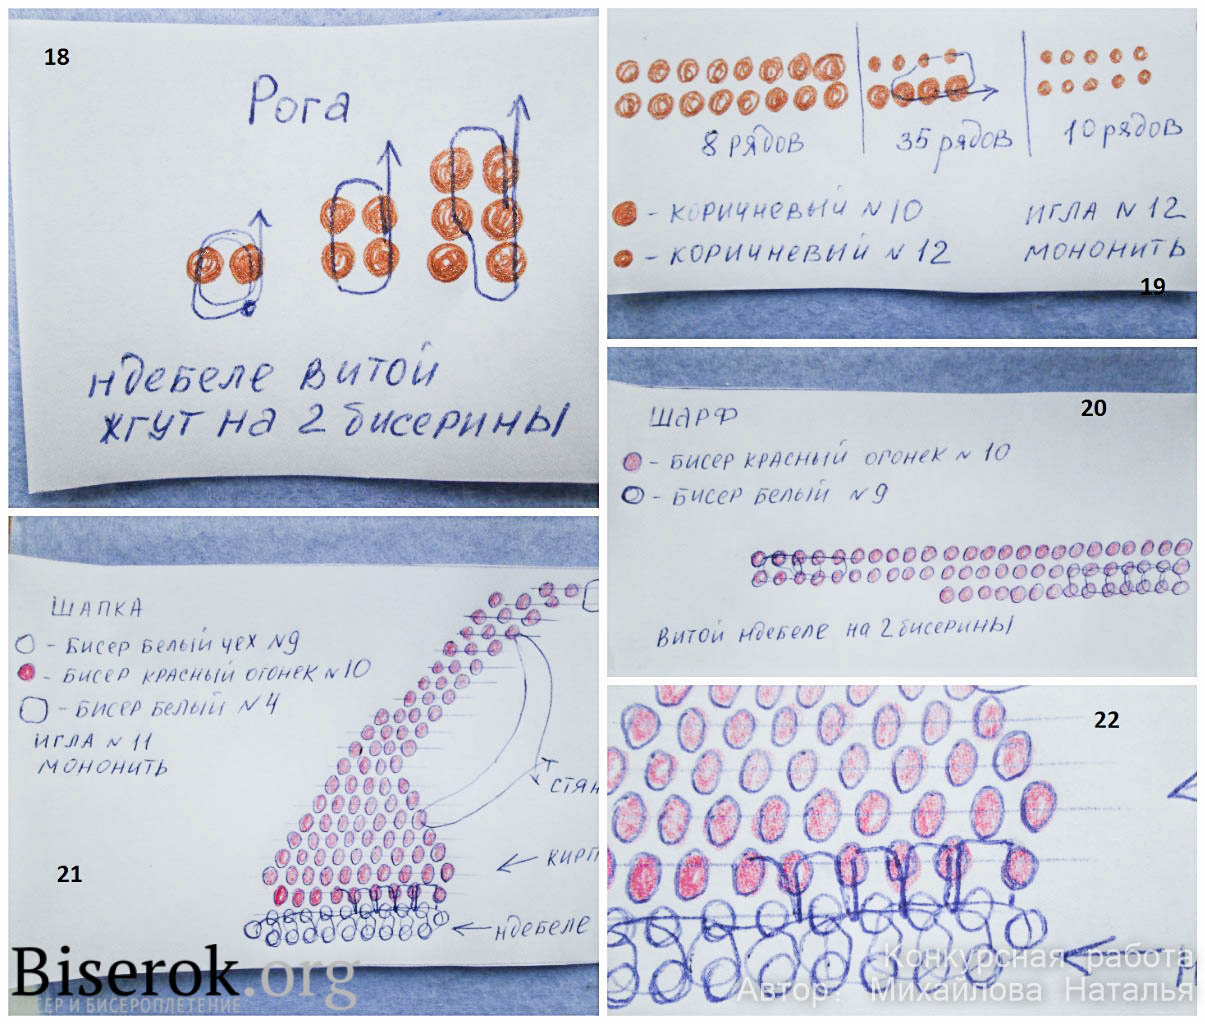 18
Рога
ндебеле витой
жгут на 2 бисерины
8 рядов
35 рядов
10 рядов
- коричневый N 10
игла N 12
- коричневый N 12
мононить
19
20
ШАРФ
- БИСЕР КРАСНЫЙ ОГОНЕК N 10
- БИСЕР БЕЛЫЙ N9
ВИТОЙ НДЕБЕЛЕ НА 2 БИСЕРИНЫ
ШАПКА
- БИСЕР БЕЛЫЙ ЧЕХ N9
- БИСЕР КРАСНЫЙ ОГОНЕК N10
- БИСЕР БЕЛЫЙ N 4
ИГЛА N 11
МОНОНИТЬ
СТЯН
КИРП
НДЕБЕЛЕ
21
22
Biserok.org
СЕР И БИСЕРОПЛЕТЕНИЕ
Конкурсная работа
Автор: Михайлова Наталья